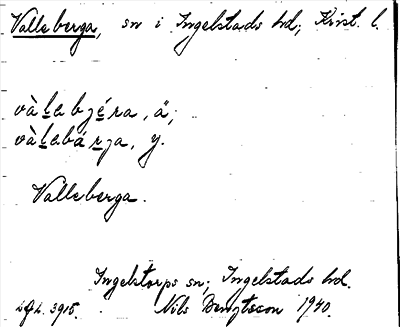 Valleberga, sn i Ingelstads hd; Krist. l.
vàḻabjéra, ä;
vàḻabárja, y.
Valleberga.
Ingelstorps sn; Ingelstads hd.
Nils Bengtsson 1940.